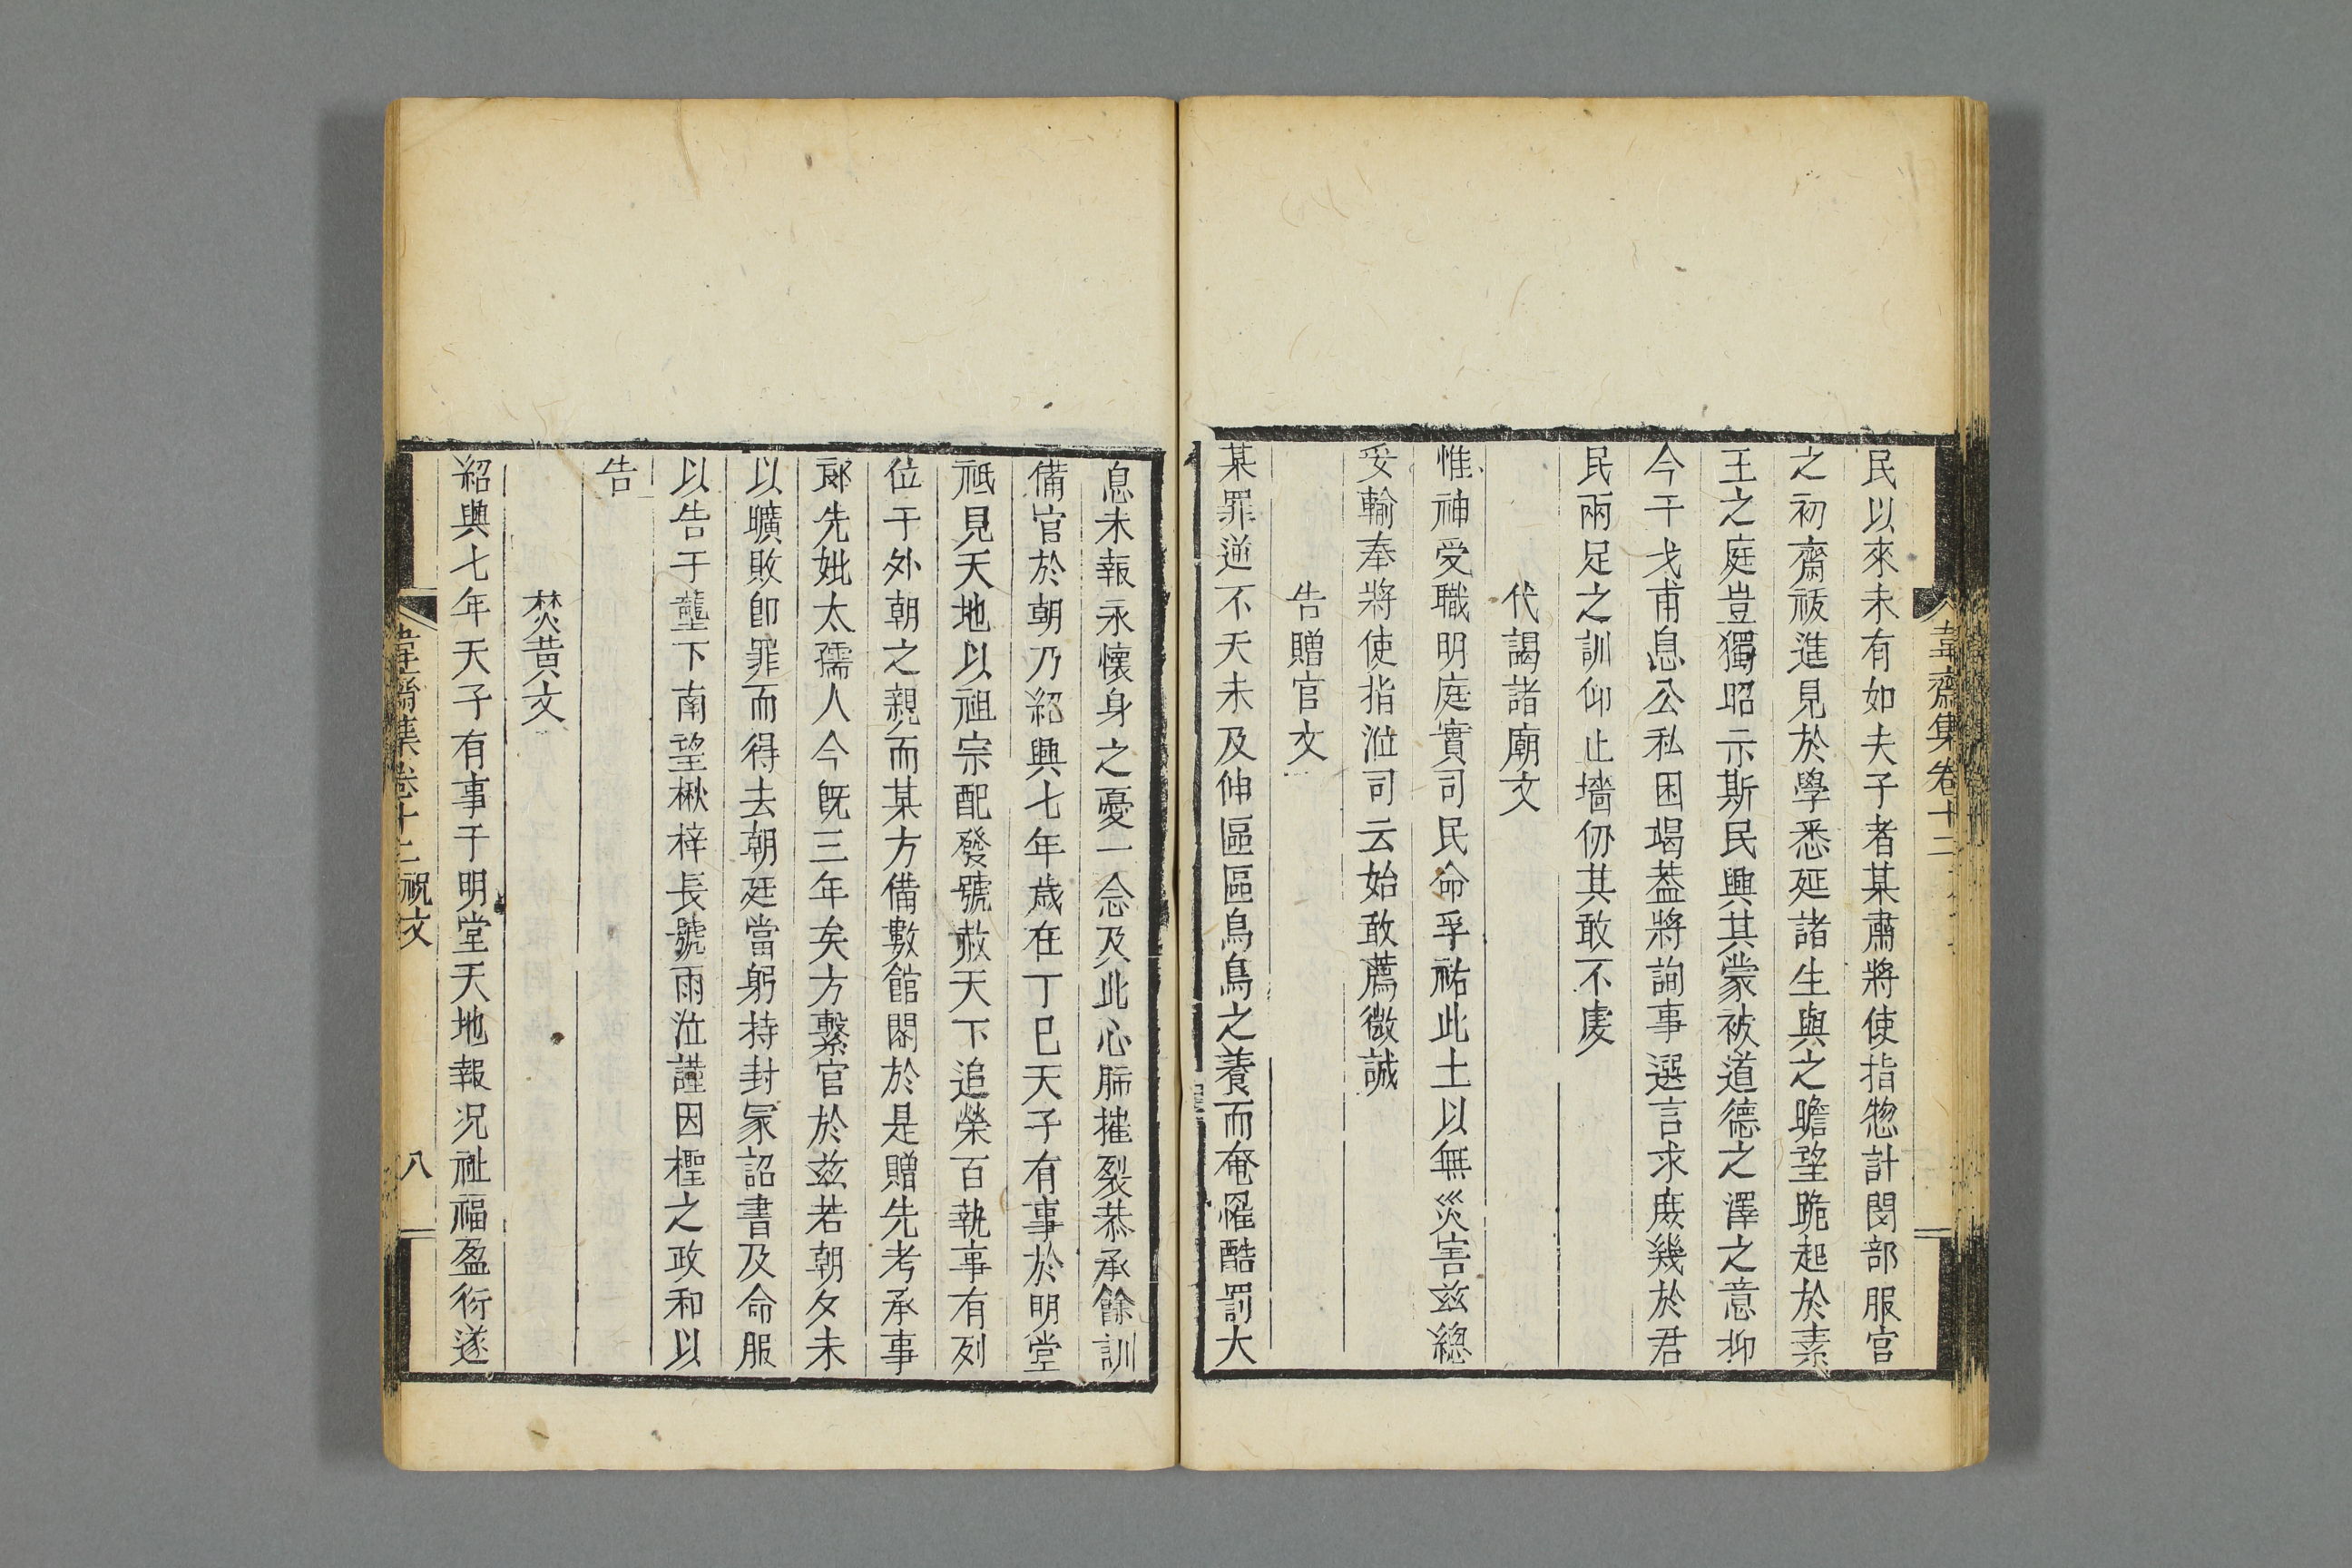 韋齋集卷十二
民以來未有如夫子者某肅將使指惣計閔部服官
之初齋祓進見於學悉延諸生與之瞻望跪起於素
王之庭豈獨昭示斯民與其蒙被道德之澤之意抑
今干戈甫息公私困竭葢將詢事選言求庶幾於君
民兩足之訓仰止墻仞其敢不虔
代謁諸廟文
惟神受職明庭實司民命孚祐此土以無災害兹總
妥輸奉將使指涖司云始敢薦微誠
告贈官文
某罪逆不天未及伸區區烏鳥之養而奄罹酷罰大
息未報永懷身之憂一念及此心肺摧裂恭承餘訓
備官於朝乃紹興七年歳在丁巳天子有事於明堂
祗見天地以祖宗配發號赦天下追榮百執事有列
位于外朝之親而某方備數館閣於是贈先考承事
郎先妣太孺人今旣三年矣方繫官於兹若朝夕未
以曠敗卽罪而得去朝廷當躬持封冡詔書及命服
以告于壟下南望楸梓長號雨泣謹因檉之政和以
告
焚黄文
紹興七年天子有事于明堂天地報况祉福盈衍遂
韋齋集卷十二 祝文 八